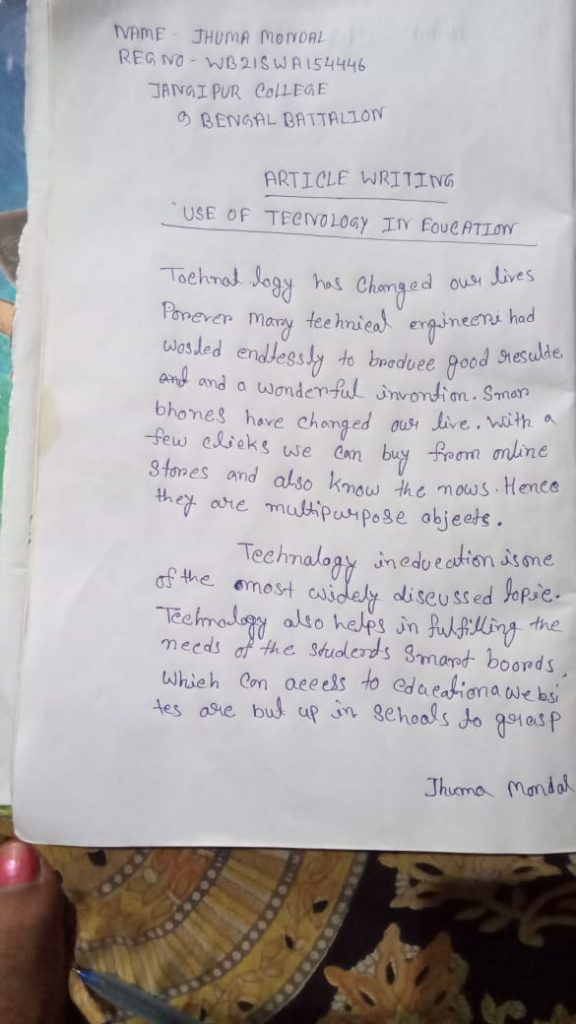 NAME - JHUMA MONDAL
REG NO - WB21SWA154446
JANGIPUR COLLEGE
9 BENGAL BATTALION
ARTICLE WRITING
USE OF TECNOLOGY IN EDUCATION
Technal logy has Changed our lives
Porever Many technical engineers had
wosded endtessly to broduee good resulte
and and a wonderful invontion. Smar
bhones have changed our live. With a
few clicks we can buy from online
Stores and also know the nows. Hence
they are multipurpose objects.
Technalogy ineducation is one
of the most widely discussed topic.
Technology also helps in fulfilling the
needs of the students Smart boords,
Which Can access to educationa websi
tes are but up in schools to grasp
Jhuma Mondal